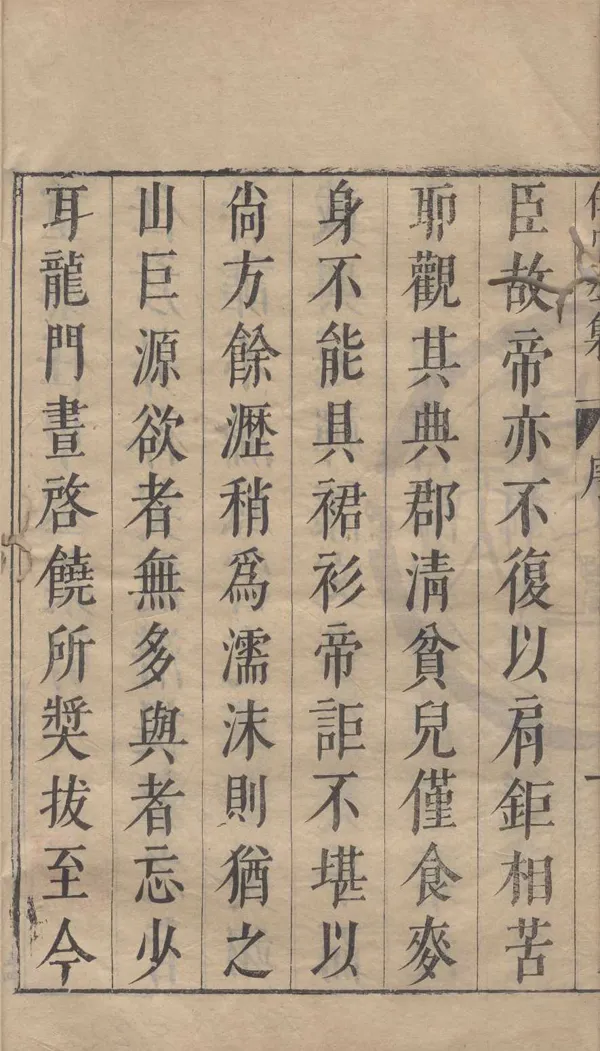 臣故帝亦不復以肩鉅相苦
耶觀其典郡清貧兒僅食麥
身不能具裙衫帝詎不堪以
尚方餘瀝稍爲濡沫則猶之
山巨源欲者無多與者忘少
耳龍門晝啓饒所奬拔至今
集
序